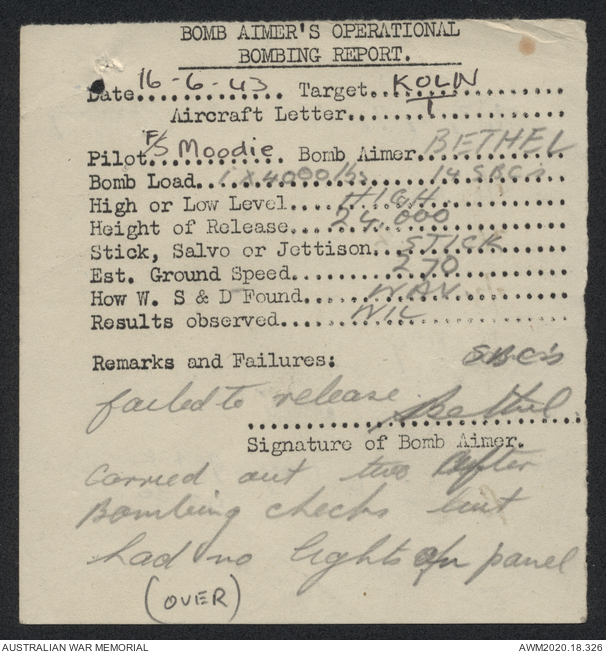 BOMB AIMER'S OPERATIONAL
BOMBING REPORT.
Date 16-6-43 Target KOLN
Aircraft Letter I
Pilot F/S Moodie Bomb Aimer BETHEL
Bomb Load 1 x 4000 lbs 14 SBC's
High or Low Level HIGH
Height of Release 24,000
Stick, Salvo or Jettison STICK
Est. Ground Speed 270
How W. S & D Found NAV
Results observed NIL
Remarks and Failures: SBC's
failed to release Bethel
Signature of Bomb Aimer.
Carried out two After
Bombing checks but
had no lights on panel
(OVER)
AUSTRALIAN WAR MEMORIAL AWM2020.18.326